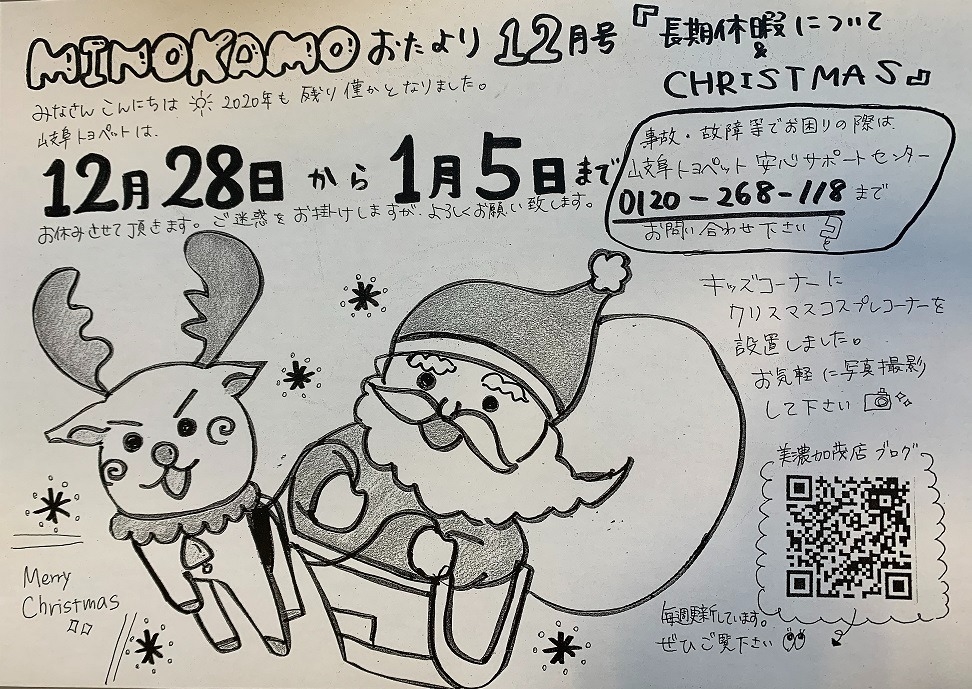 MINOKAMO おたより 12月号 『長期休暇について
&
CHRISTMAS』
みなさん こんにちは 2020年も 残り僅かとなりました。
岐阜トヨペットは、
12月28日 から 1月5日まで
お休みさせて頂きます。ご迷惑をお掛けしますが、よろしくお願い致します。
事故・故障等でお困りの際は、
岐阜トヨペット 安心サポートセンター
0120-268-118 まで
お問い合わせ下さい
キッズコーナーに
クリスマスコスプレコーナーを
設置しました。
お気軽に写真撮影
して下さい
美濃加茂店 ブログ
毎週更新しています。
ぜひご覧下さい
Merry
Christmas